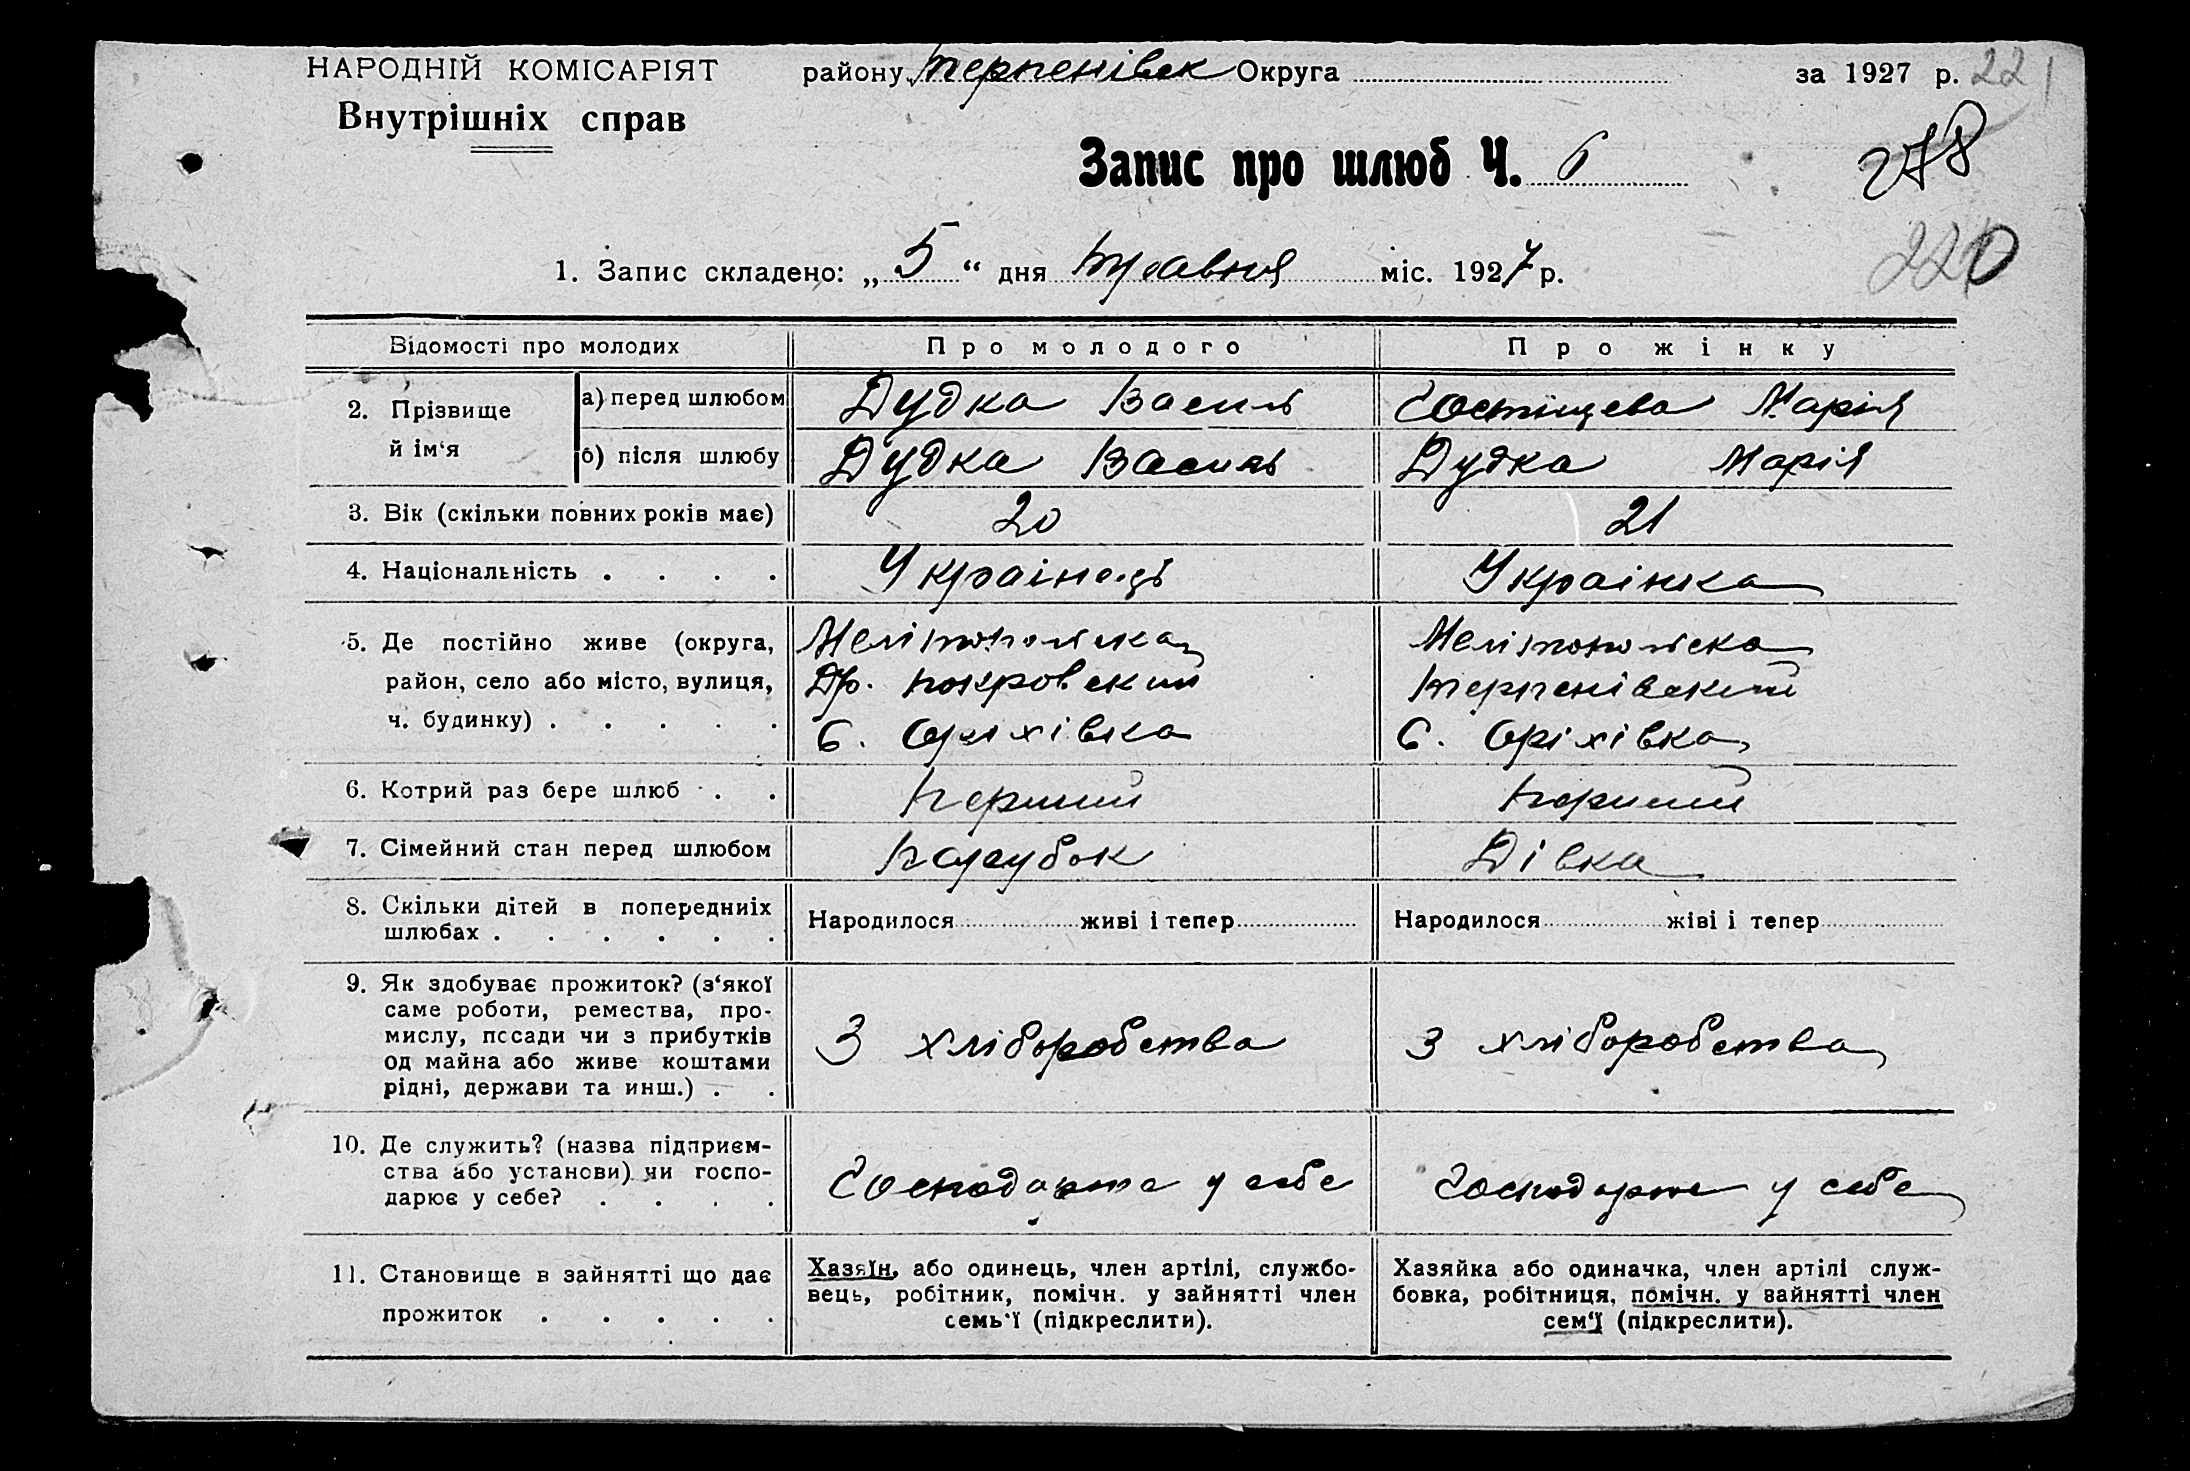 НАРОДНІЙ КОМІСАРІЯТ
Внутрішніх справ
району Терпенівск Округа за 1927 р. 221
Запис про шлюб Ч. 6
278
220
1. Запис складено: „5“ дня травня міс. 1927 р.
Відомості про молодих
Про молодого
Про жінку
2. Прізвище й ім‘я
а) перед шлюбом
Дудка Василь
Гостіщева Марія
б) після шлюбу
Дудка Василь
Дудка Марія
3. Вік (скільки повних років має)
20
21
4. Національність . . . .
Украінець
Украінка
5. Де постійно живе (округа,
район, село або місто, вулиця,
ч. будинку) . . . . .
Мелітопольска
Др. Покровский
С. Оріхівка
Мелітопольска
Терпенівский
С. Оріхівка
6. Котрий раз бере шлюб . .
Перший
Перший
7. Сімейний стан перед шлюбом
Парубок
Дівка
8. Скільки дітей в попередниіх
шлюбах . . . . . .
Народилося живі і тепер
Народилося жіві і тепер
9. Як здобуває прожиток? (з‘якої
саме роботи, ремества, про-
мислу, посади чи з прибутків
од майна або живе коштами
рідні, держави та инш.) . .
З хліборобства
З хліборобства
10. Де служить? (назва підприєм-
ства або установи) чи госпо-
дарює у себе? . . . .
Господарює у себе
Господарює у себе
11. Становище в зайнятті що дає
прожиток . . . . .
Хазяїн, або одинець, член артілі, службо-
вець, робітник, помічн. у зайнятті член
семь‘ї (підкреслити).
Хазяйка або одиначка, член артілі служ-
бовка, робітниця, помічн. у зайнятті член
сем‘ї (підкреслити).